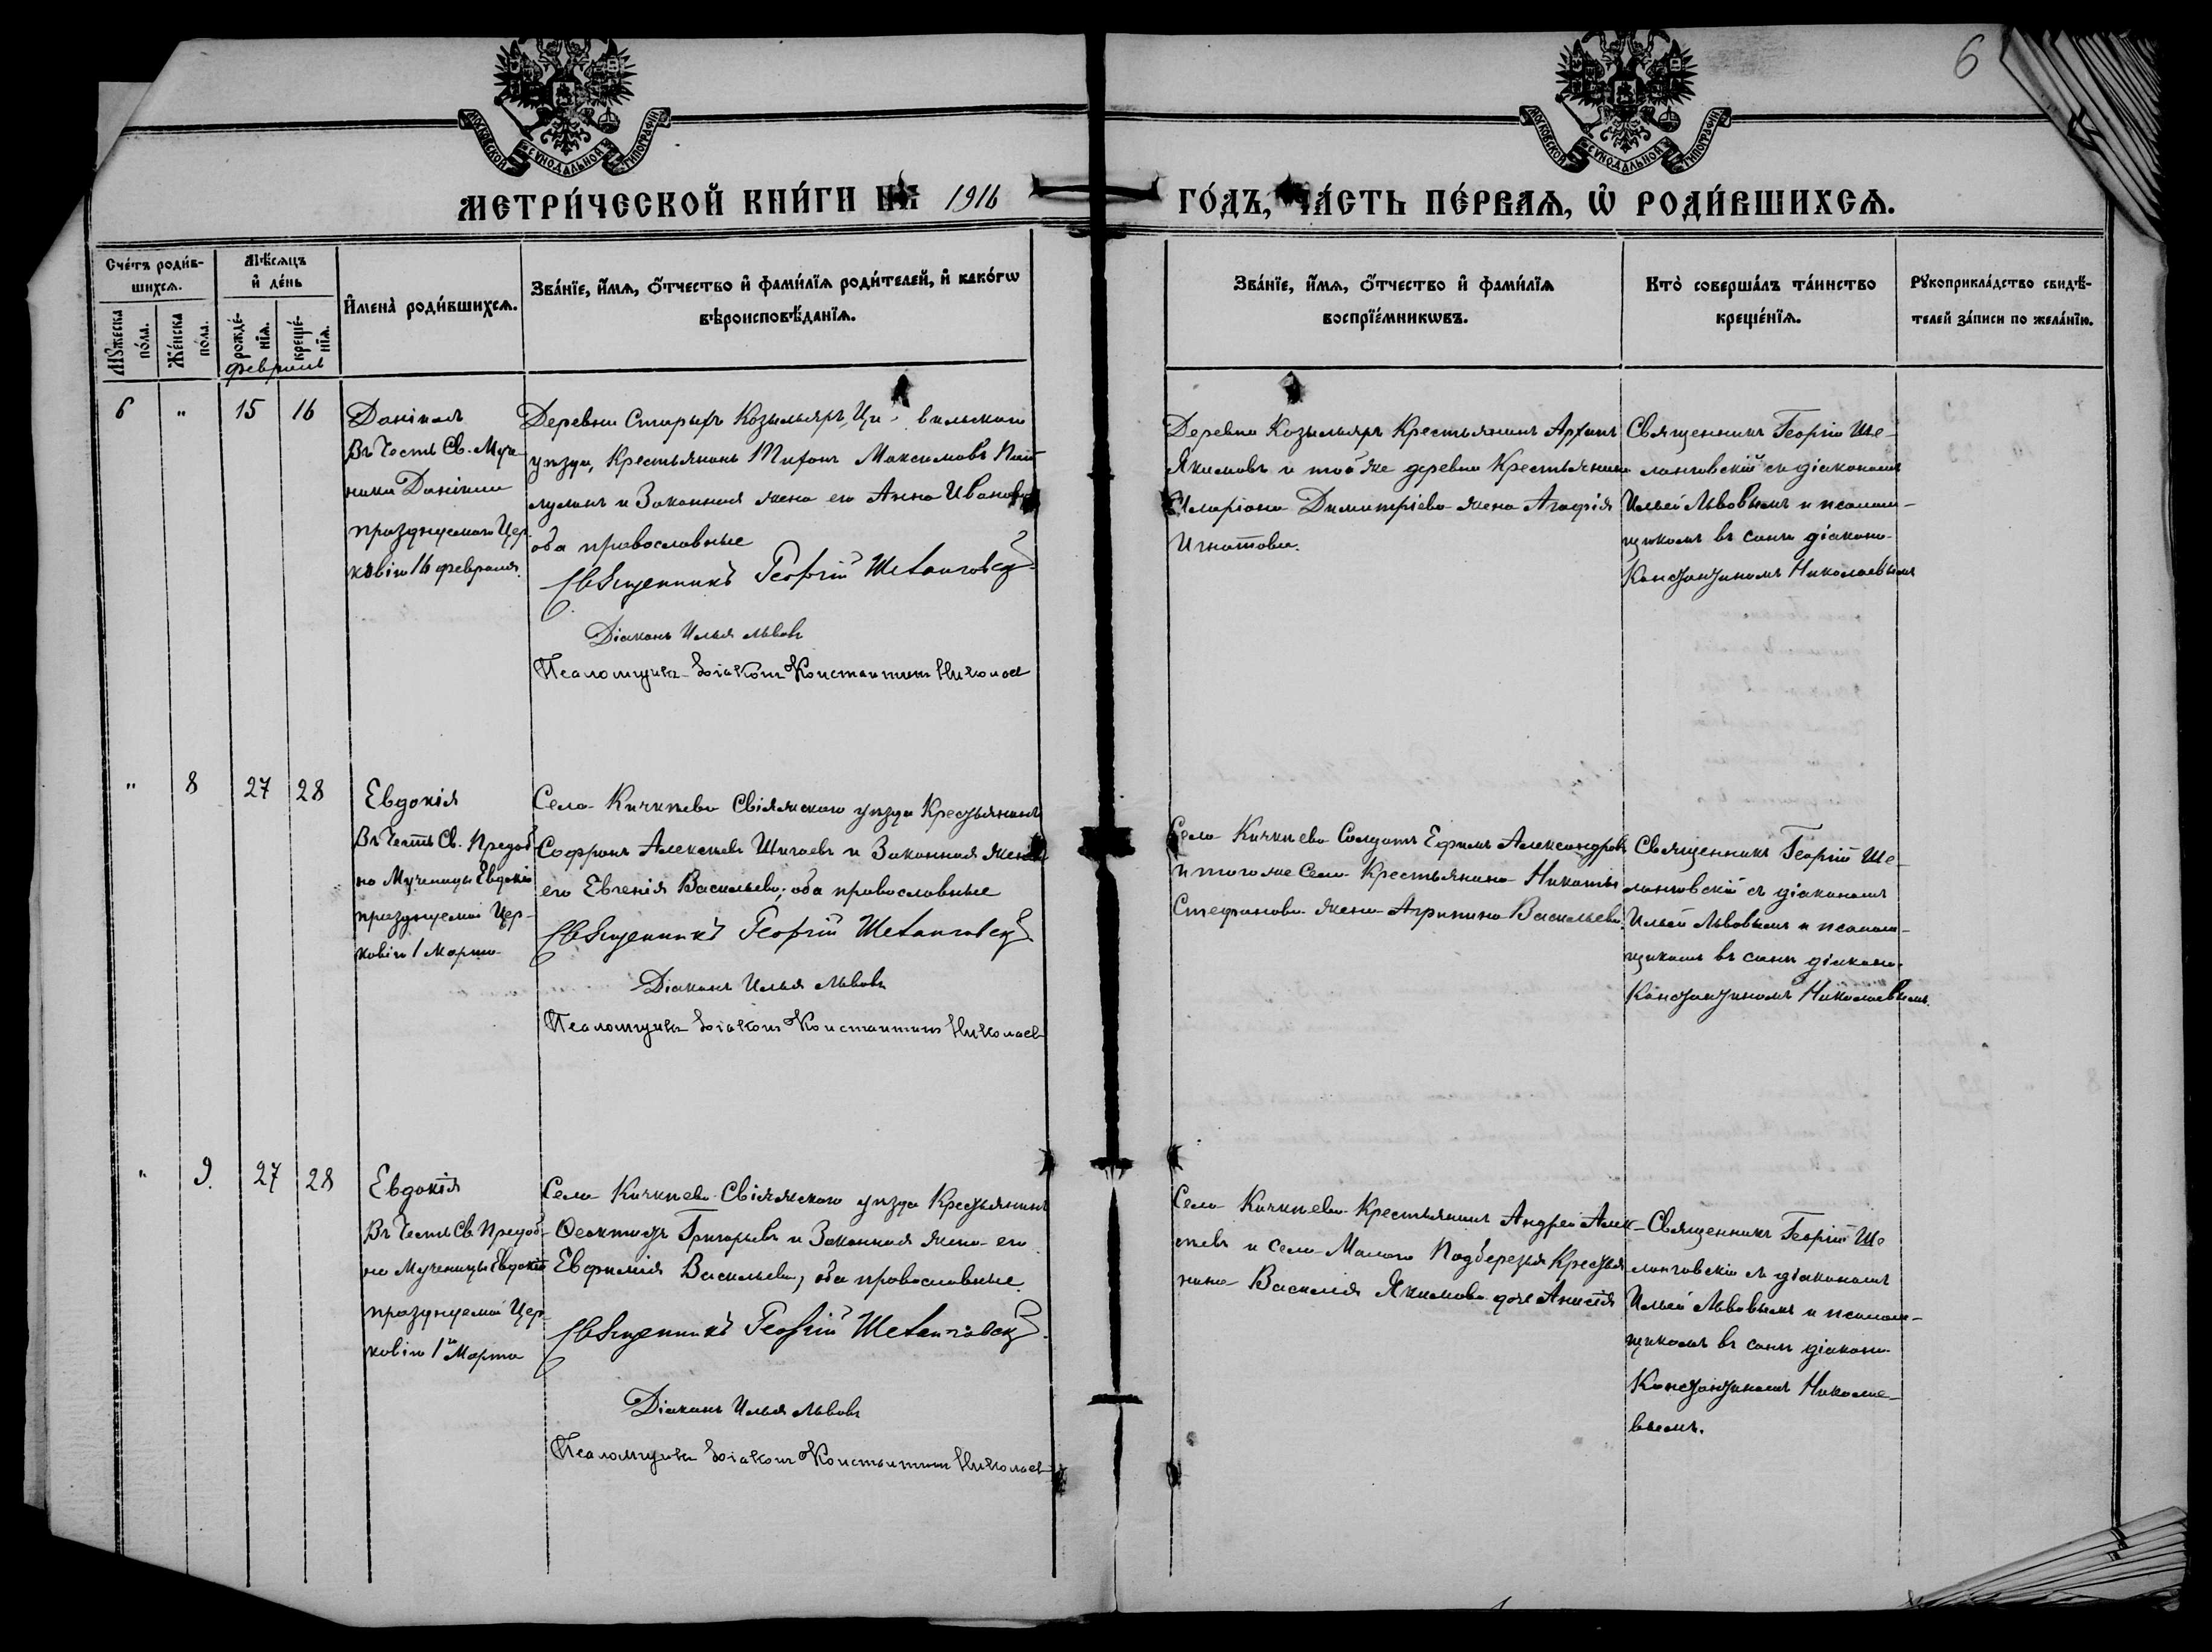 6
МОСКОВСКОЙ СѴНОДАЛЬНОЙ ТИПОГРАФІИ
МОСКОВСКОЙ СѴНОДАЛЬНОЙ ТИПОГРАФІИ
МЕТРИ́ЧЕСКОЙ КНИ́ГИ НА 1916
ГО́ДЪ, ЧА́СТЬ ПЕ́РВАѦ, Ѡ҆ РОДИ́ВШИХСѦ.
Сче́тъ роди́в-
шихсѧ.
Мꙋ́жеска по́ла.
Же́нска по́ла.
Мѣ́сѧцъ
и҆ де́нь
рожде́-
нїѧ.
креще́-
нїѧ.
Февраль
И҆мена̀ роди́вшихсѧ.
Зва́нїе, и҆́мѧ, ѻ҆́тчество и҆ фами́лїѧ роди́телей, и҆ како́гѡ
вѣроисповѣ́данїѧ.
Зва́нїе, и҆́мѧ, ѻ҆́тчество и҆ фами́лїѧ
воспрїе́мникѡвъ.
Кто̀ соверша́лъ та́инство
креще́нїѧ.
Рꙋкоприкла́дство свидѣ́-
телей за́писи по жела́нїю.
6 " 15 16
Даніилъ
Въ Честь Св. Муче-
ника Даніила
празднуемаго Цер-
ковію 16 февраля.
Деревни Старыхъ Козыльяръ, Ци-вильскаго
уѣзда, Крестьянинъ Тихонъ Максимовъ
и Законная жена его Анна Иванова
оба православные
Священникъ Георгій Шеланговскій
Діаконъ Илья Львовъ
Псаломщикъ-діаконъ Константинъ Николаев
Деревни Козыльяръ Крестьянинъ Архипъ
Якимовъ и той же деревни Крестьянина
Иларіона Димитріева жена Агафія
Игнатова.
Священникъ Георгій Ше-
ланговскій съ діакономъ
Ильей Львовымъ и псалом-
щикомъ въ санѣ діакона
Константиномъ Николаевымъ
" 8 27 28
Евдокія
Въ Честь Св. Преподоб-
но Мученицы Евдокіи
празднуемой Цер-
ковію 1 Марта
Села Кичкѣева Свіяжскаго уѣзда Крестьянинъ
Софронъ Алексѣевъ Шигаевъ и Законная жена
его Евгенія Васильева, оба православные
Священникъ Георгій Шеланговскій
Діаконъ Илья Львовъ
Псаломщикъ-діаконъ Константинъ Николаев
Села Кичкѣева Солдатъ Ефимъ Александровъ
и того же Села Крестьянина Никиты
Стефанова жена Агрипина Васильева.
Священникъ Георгій Ше-
ланговскій съ діакономъ
Ильей Львовымъ и псалом-
щикомъ въ санѣ діакона
Константиномъ Николаевымъ.
" 9. 27 28
Евдокія
Въ Честь Св. Преподоб-
но Мученицы Евдокіи
празднуемой Цер-
ковію 1го Марта
Села Кичкѣева Свіяжскаго уѣзда Крестьянинъ
Ѳеоктистъ Григорьевъ и Законная жена его
Евфимія Васильева, оба православные.
Священникъ Георгій Шеланговскій.
Діаконъ Илья Львовъ
Псаломщикъ діаконъ Константинъ Николаев
Села Кичкѣева Крестьянинъ Андрей Алек-
сѣевъ и Села Малаго Подберезья Крестья-
нина Василія Якимова дочь Анисія
Священникъ Георгій Ше-
ланговскій съ діакономъ
Ильей Львовымъ и псалом-
щикомъ въ санѣ діакона
Константиномъ Николае-
вымъ.